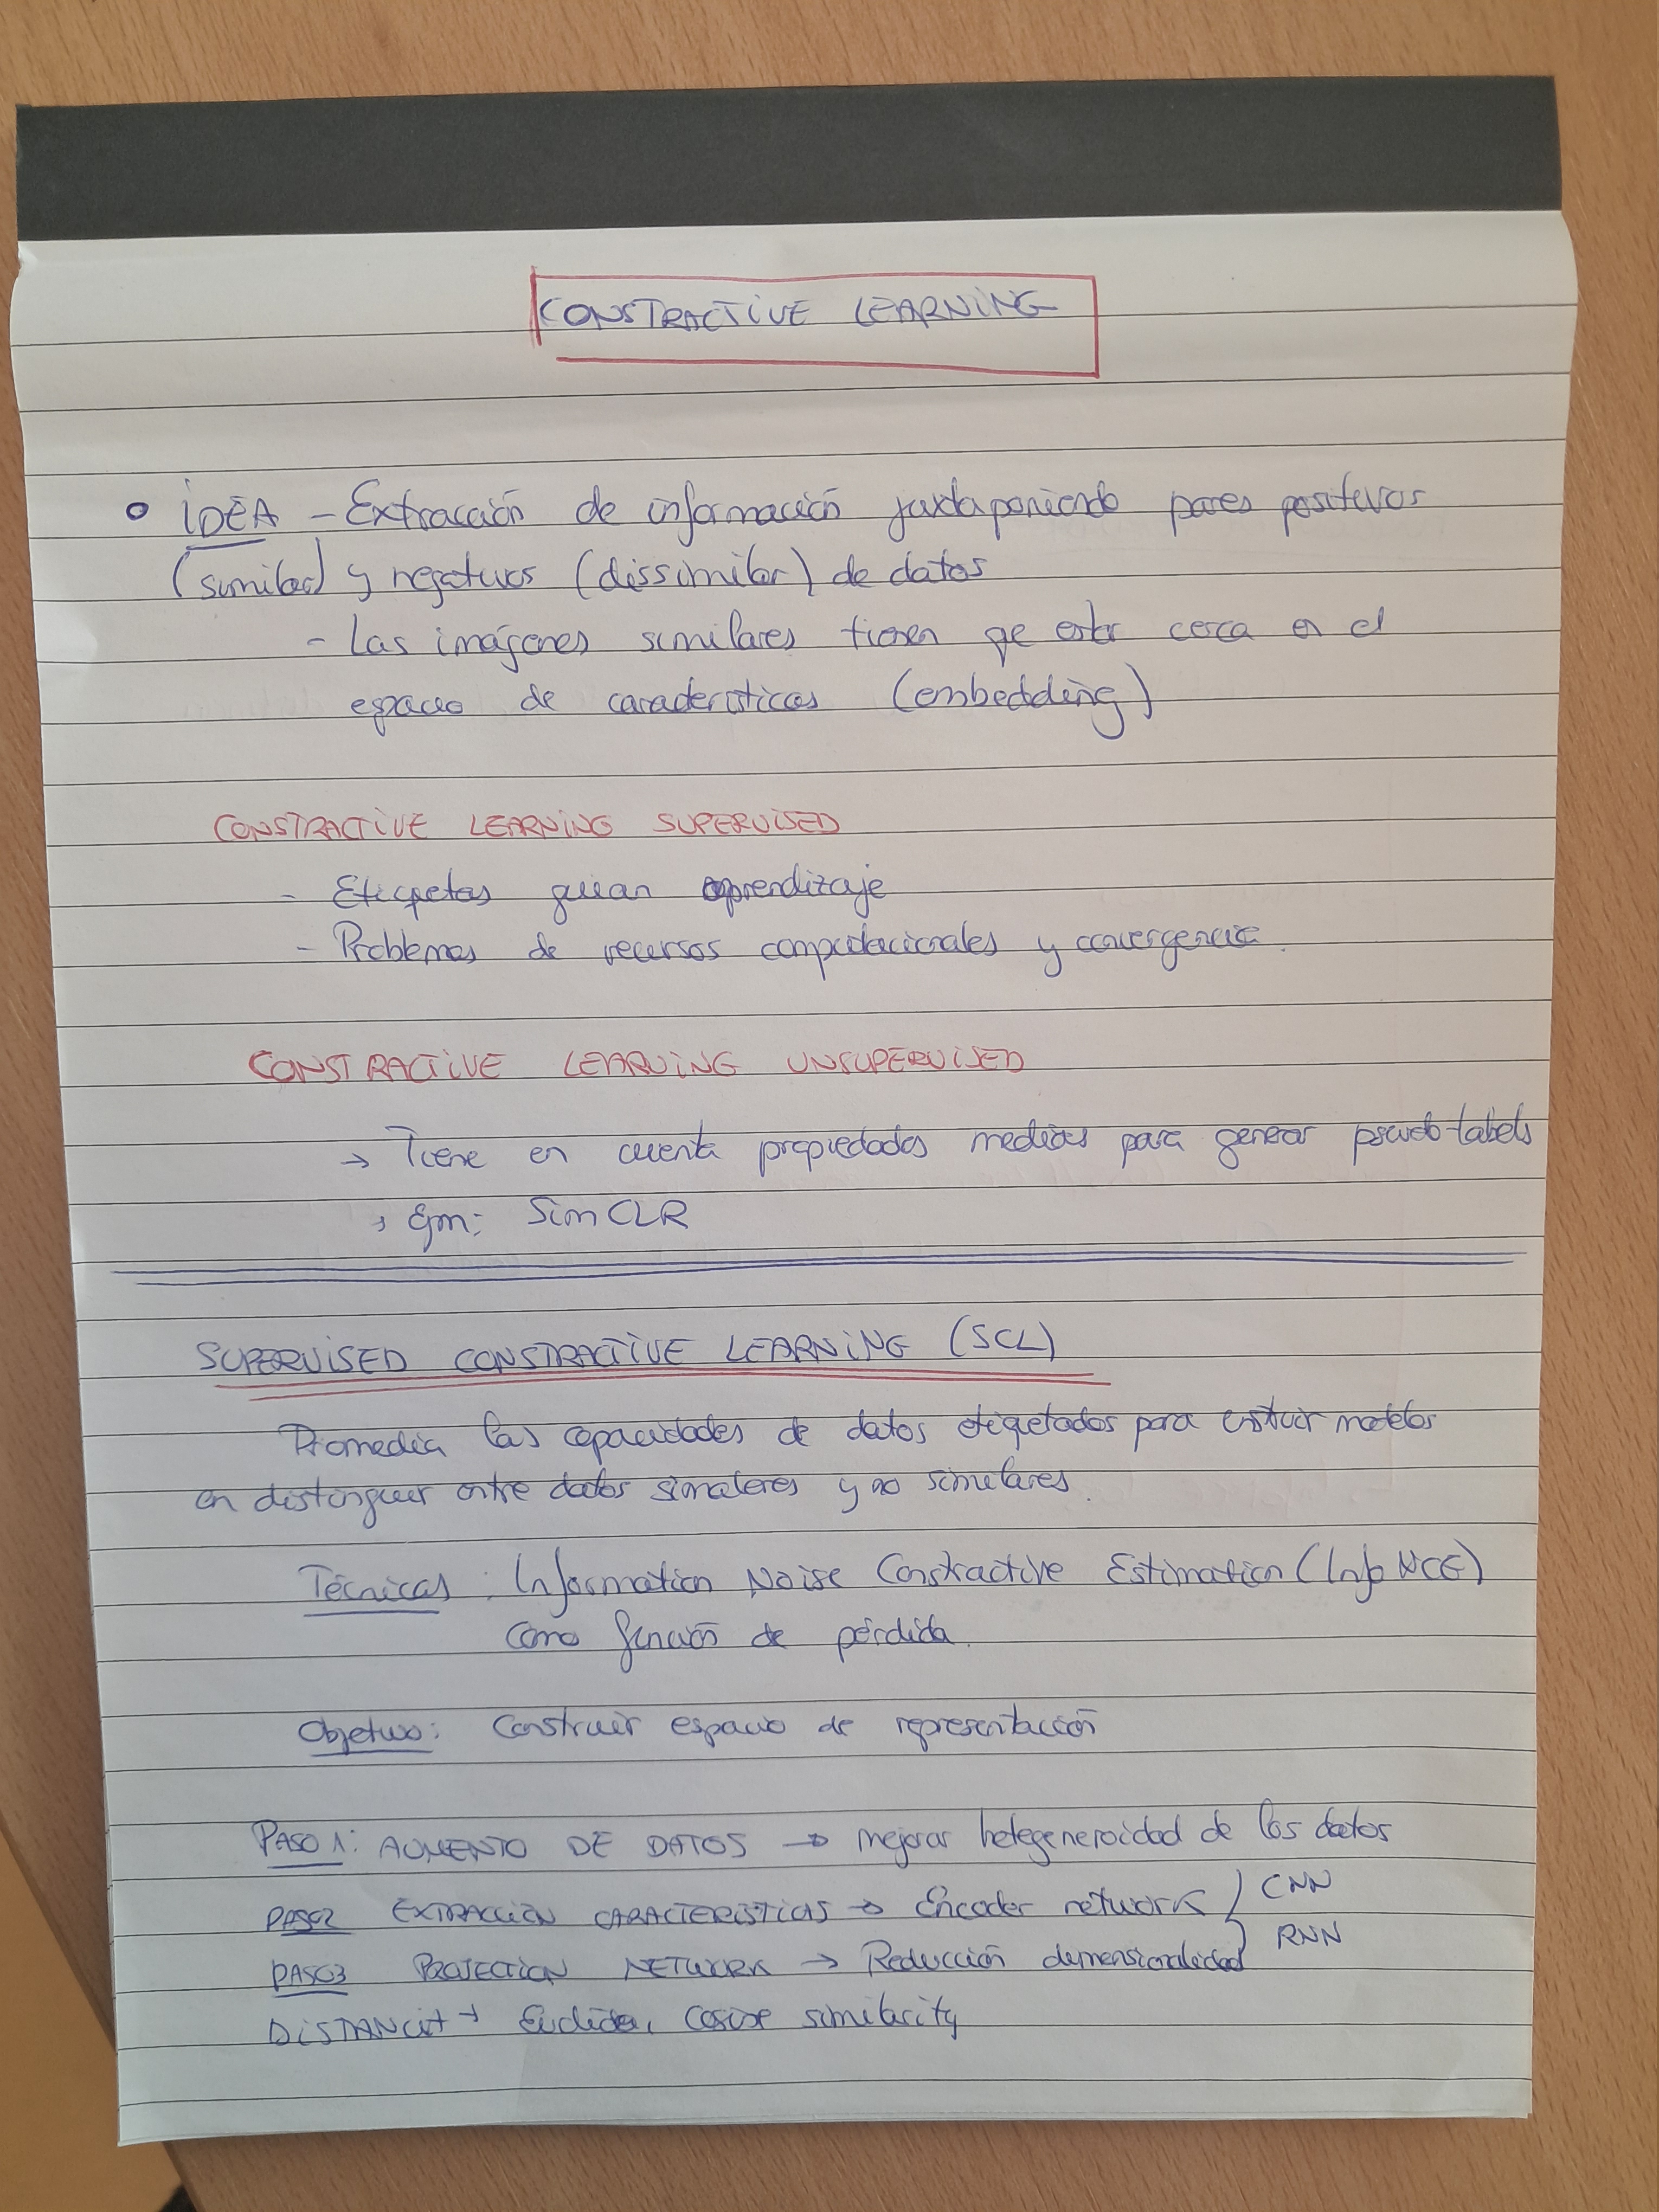 CONSTRACTIVE LEARNING
• IDEA - Extracción de información juxtaponiendo pares positivos
(similar) y negativos (dissimilar) de datos
- Las imágenes similares tienen qe estar cerca en el
espacio de características (embedding)
CONSTRACTIVE LEARNING SUPERVISED
- Etiquetas guian aprendizaje
- Problemas de recursos computacionales y convergencia.
CONSTRACTIVE LEARNING UNSUPERVISED
→ Tiene en cuenta propiedades medias para generar pseudo-labels
→ Ejm: SimCLR
SUPERVISED CONSTRACTIVE LEARNING (SCL)
Promedia las capacidades de datos etiquetados para modelos
en distinguir entre datos similares y no similares.
Técnicas: Information Noise Constractive Estimation (Info NCE)
como función de pérdida.
Objetivo: Construir espacio de representación
PASO 1: AUMENTO DE DATOS → mejorar hetegeneroidad de los datos
PASO2 EXTRACCIÓN CARACTERISTICAS → Encoder network } CNN
RNN
PASO3 PROJECTION NETWORK → Reducción dimensionalidad
DISTANCIA → Euclidea, Cosine similarity